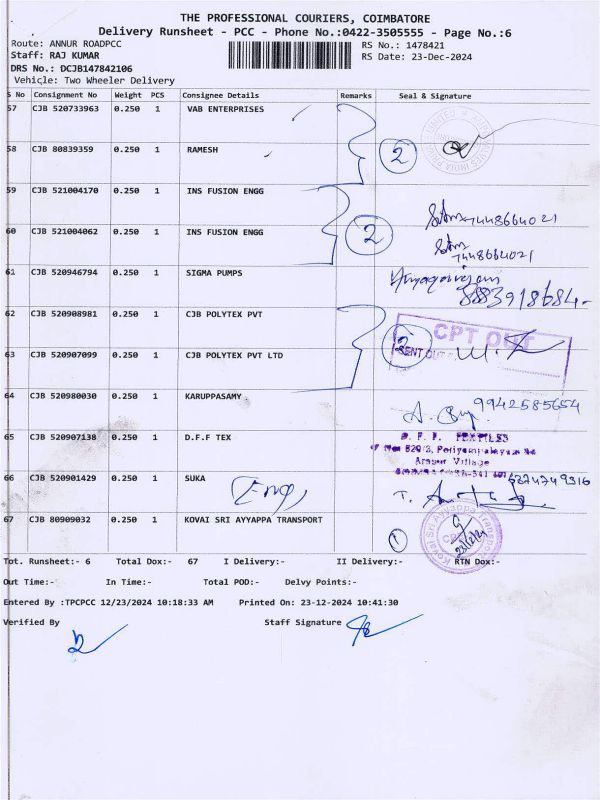 THE PROFESSIONAL COURIERS, COIMBATORE
Delivery Runsheet - PCC - Phone No.:0422-3505555 - Page No.:6
Route: ANNUR ROADPCC RS No.: 1478421
Staff: RAJ KUMAR RS Date: 23-Dec-2024
DRS No.: DCJB147842106
Vehicle: Two Wheeler Delivery
S No Consignment No Weight PCS Consignee Details Remarks Seal & Signature
57 CJB 520733963 0.250 1 VAB ENTERPRISES
58 CJB 80839359 0.250 1 RAMESH 2
59 CJB 521004170 0.250 1 INS FUSION ENGG 7448664021
60 CJB 521004062 0.250 1 INS FUSION ENGG 2
7448664021
61 CJB 520946794 0.250 1 SIGMA PUMPS
8883918684
62 CJB 520908981 0.250 1 CJB POLYTEX PVT
CPT OUT
63 CJB 520907099 0.250 1 CJB POLYTEX PVT LTD 2 SENT OUT
64 CJB 520980030 0.250 1 KARUPPASAMY 9942585654
65 CJB 520907138 0.250 1 D.F.F TEX D. F. F. TEXTILES
Arasur Village
66 CJB 520901429 0.250 1 SUKA Engg
67 CJB 80909032 0.250 1 KOVAI SRI AYYAPPA TRANSPORT 1 Kovai Sri Ayyappa Transport
Tot. Runsheet:- 6 Total Dox:- 67 I Delivery:- II Delivery:- RTN Dox:-
Out Time:- In Time:- Total POD:- Delvy Points:-
Entered By :TPCPCC 12/23/2024 10:18:33 AM Printed On: 23-12-2024 10:41:30
Verified By Staff Signature